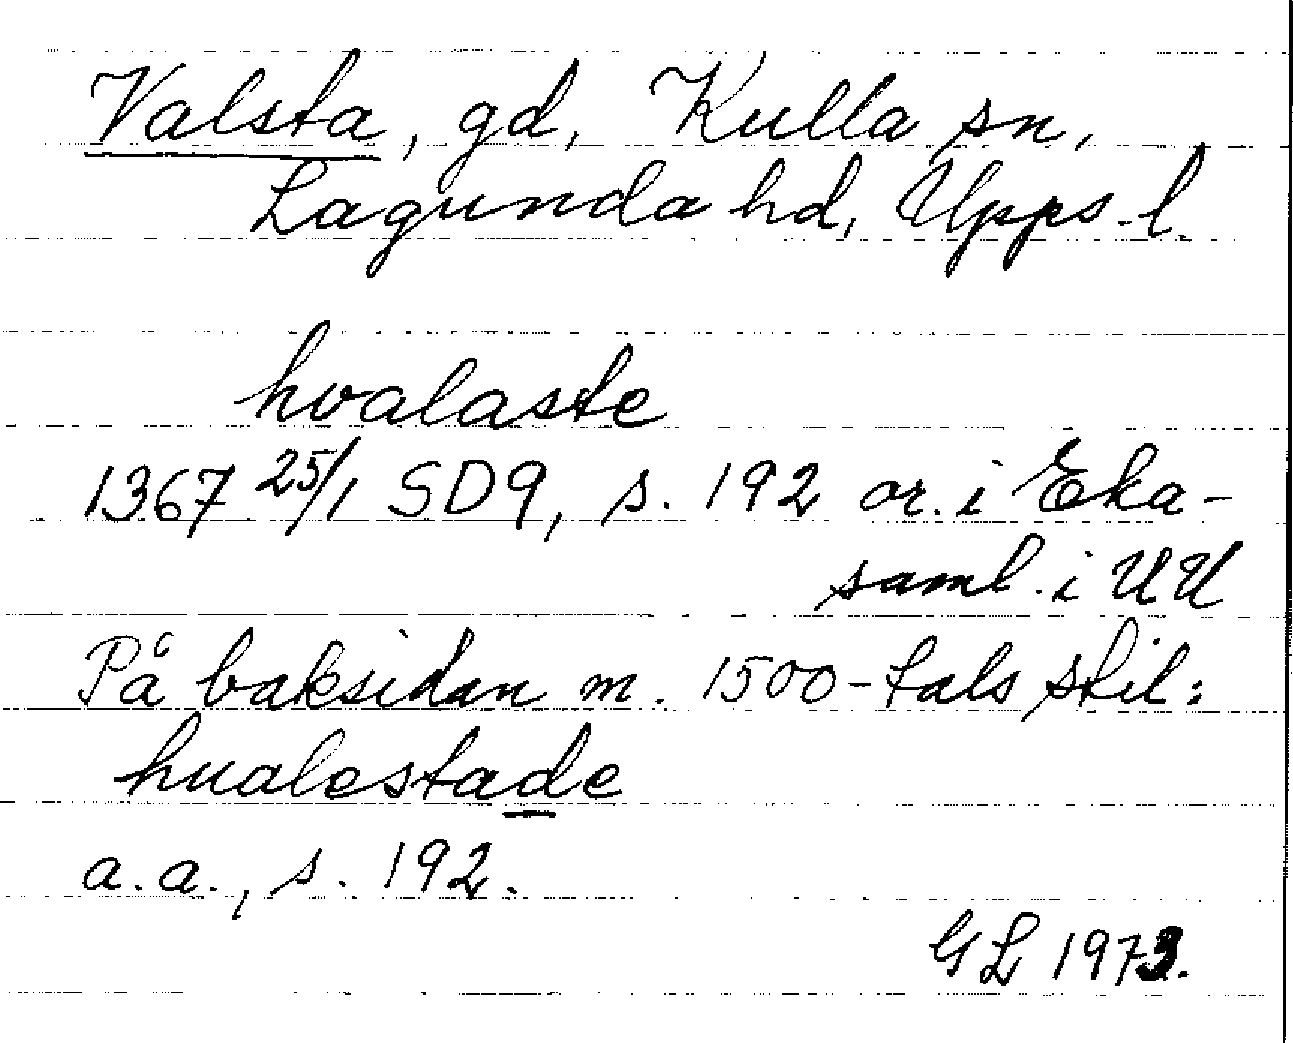 Valsta, gd, Kulla sn,
Lagunda hd, Upps. l.
hvalaste
1367 25/1 SD9, s. 192 or. i Eka-
saml. i UU
På baksidan m. 1500-tals stil:
hualestade
a.a., s. 192.
GL 1973.